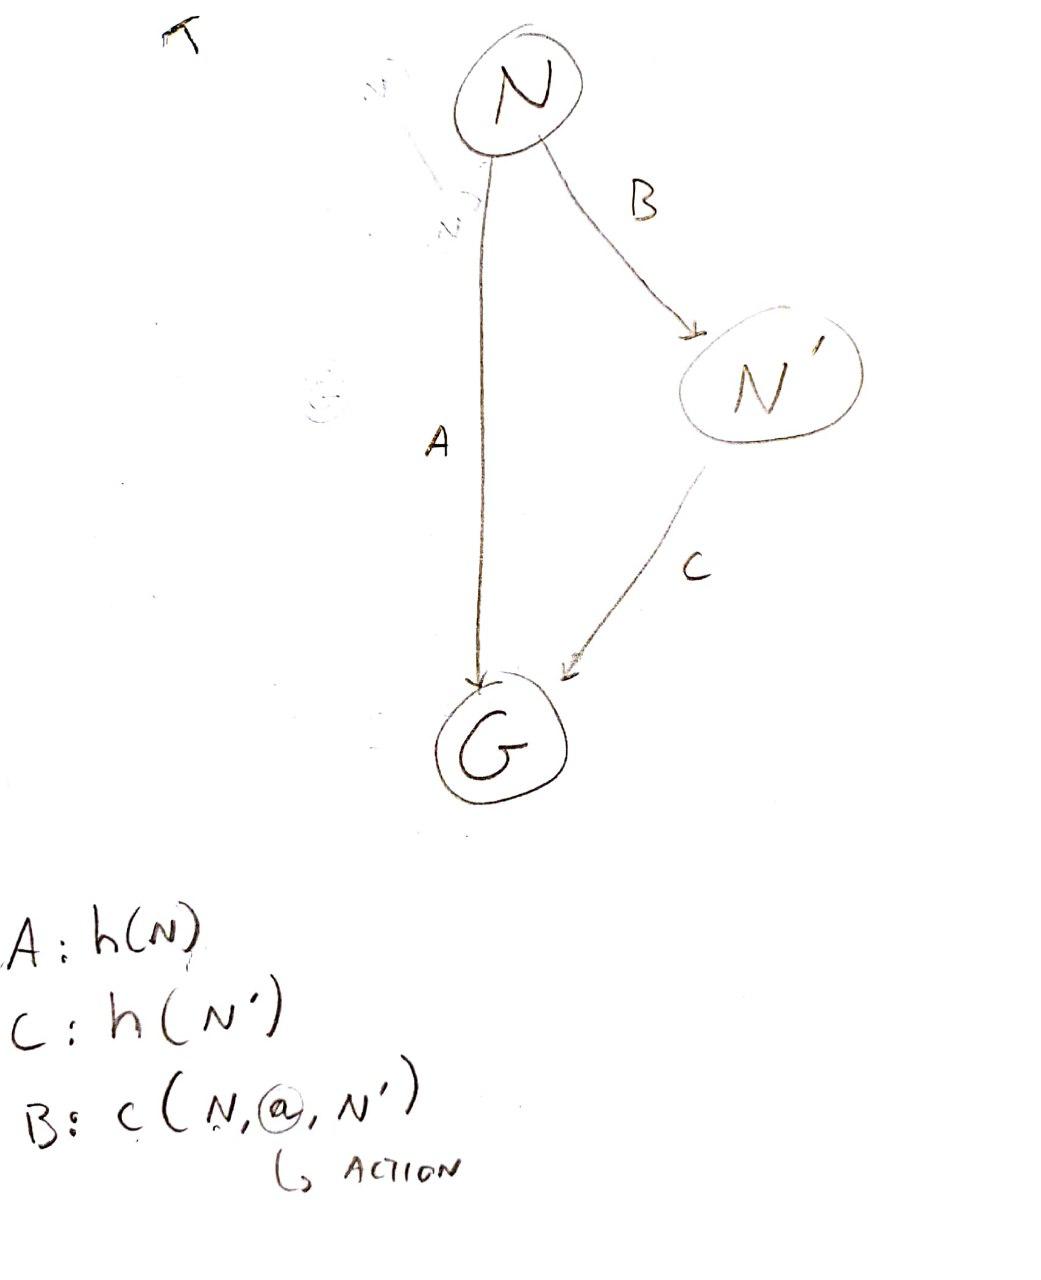 N
B
N'
A
C
G
A: h(N)
C: h(N')
B: c(N, a, N')
↳ ACTION